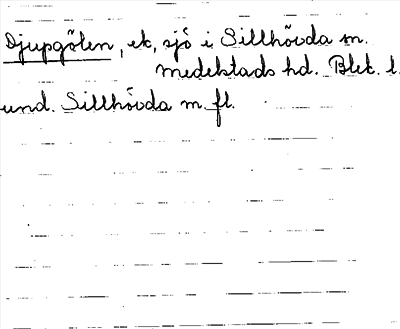 Djupgölen, ek, sjö i Sillhövda sn.
Medelstads hd. Blek. l.
und. Sillhövda m. fl.